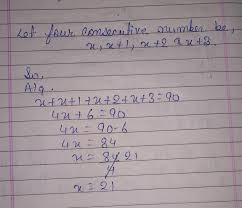 Let four consecutive number be,
x, x+1, x+2 & x+3.
Sn,
A/q.
x+x+1+x+2+x+3=90
4x+6=90
4x=90-6
4x=84
x=84 21
4
x=21